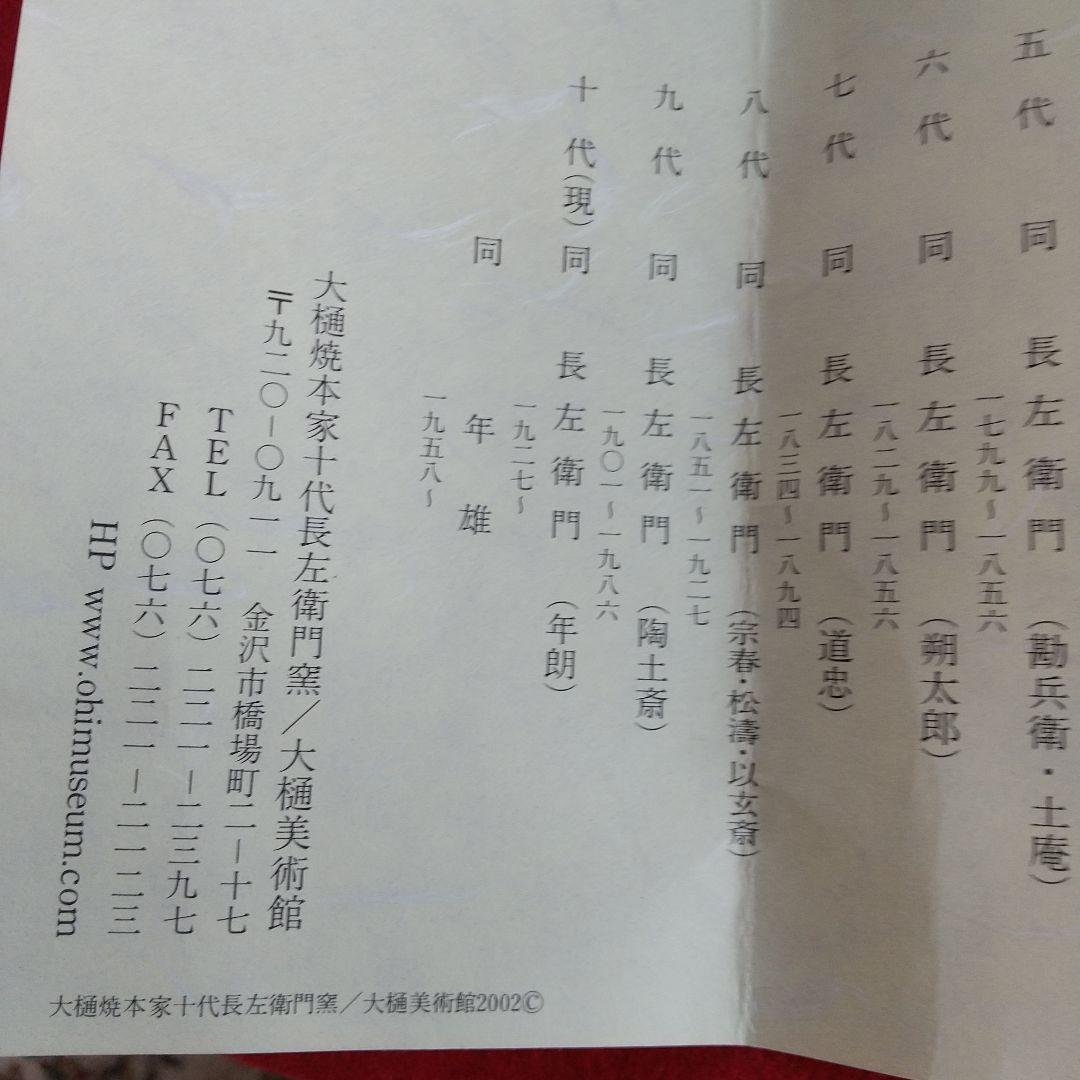 五代 同 長左衛門 (勘兵衛・土庵)
一七九九~一八五六
六代 同 長左衛門 (朔太郎)
一八二九~一八五六
七代 同 長左衛門 (道忠)
一八三四~一八九四
八代 同 長左衛門 (宗春・松濤・以玄斎)
一八五一~一九二七
九代 同 長左衛門 (陶土斎)
一九〇一~一九八六
十代(現) 同 長左衛門 (年朗)
一九二七~
同 年雄
一九五八~
大樋焼本家十代長左衛門窯/大樋美術館
〒九二〇-〇九一一 金沢市橋場町二-十七
TEL (〇七六) 二二一-二三九七
FAX (〇七六) 二二一-二一二三
HP www.ohimuseum.com
大樋焼本家十代長左衛門窯/大樋美術館2002©